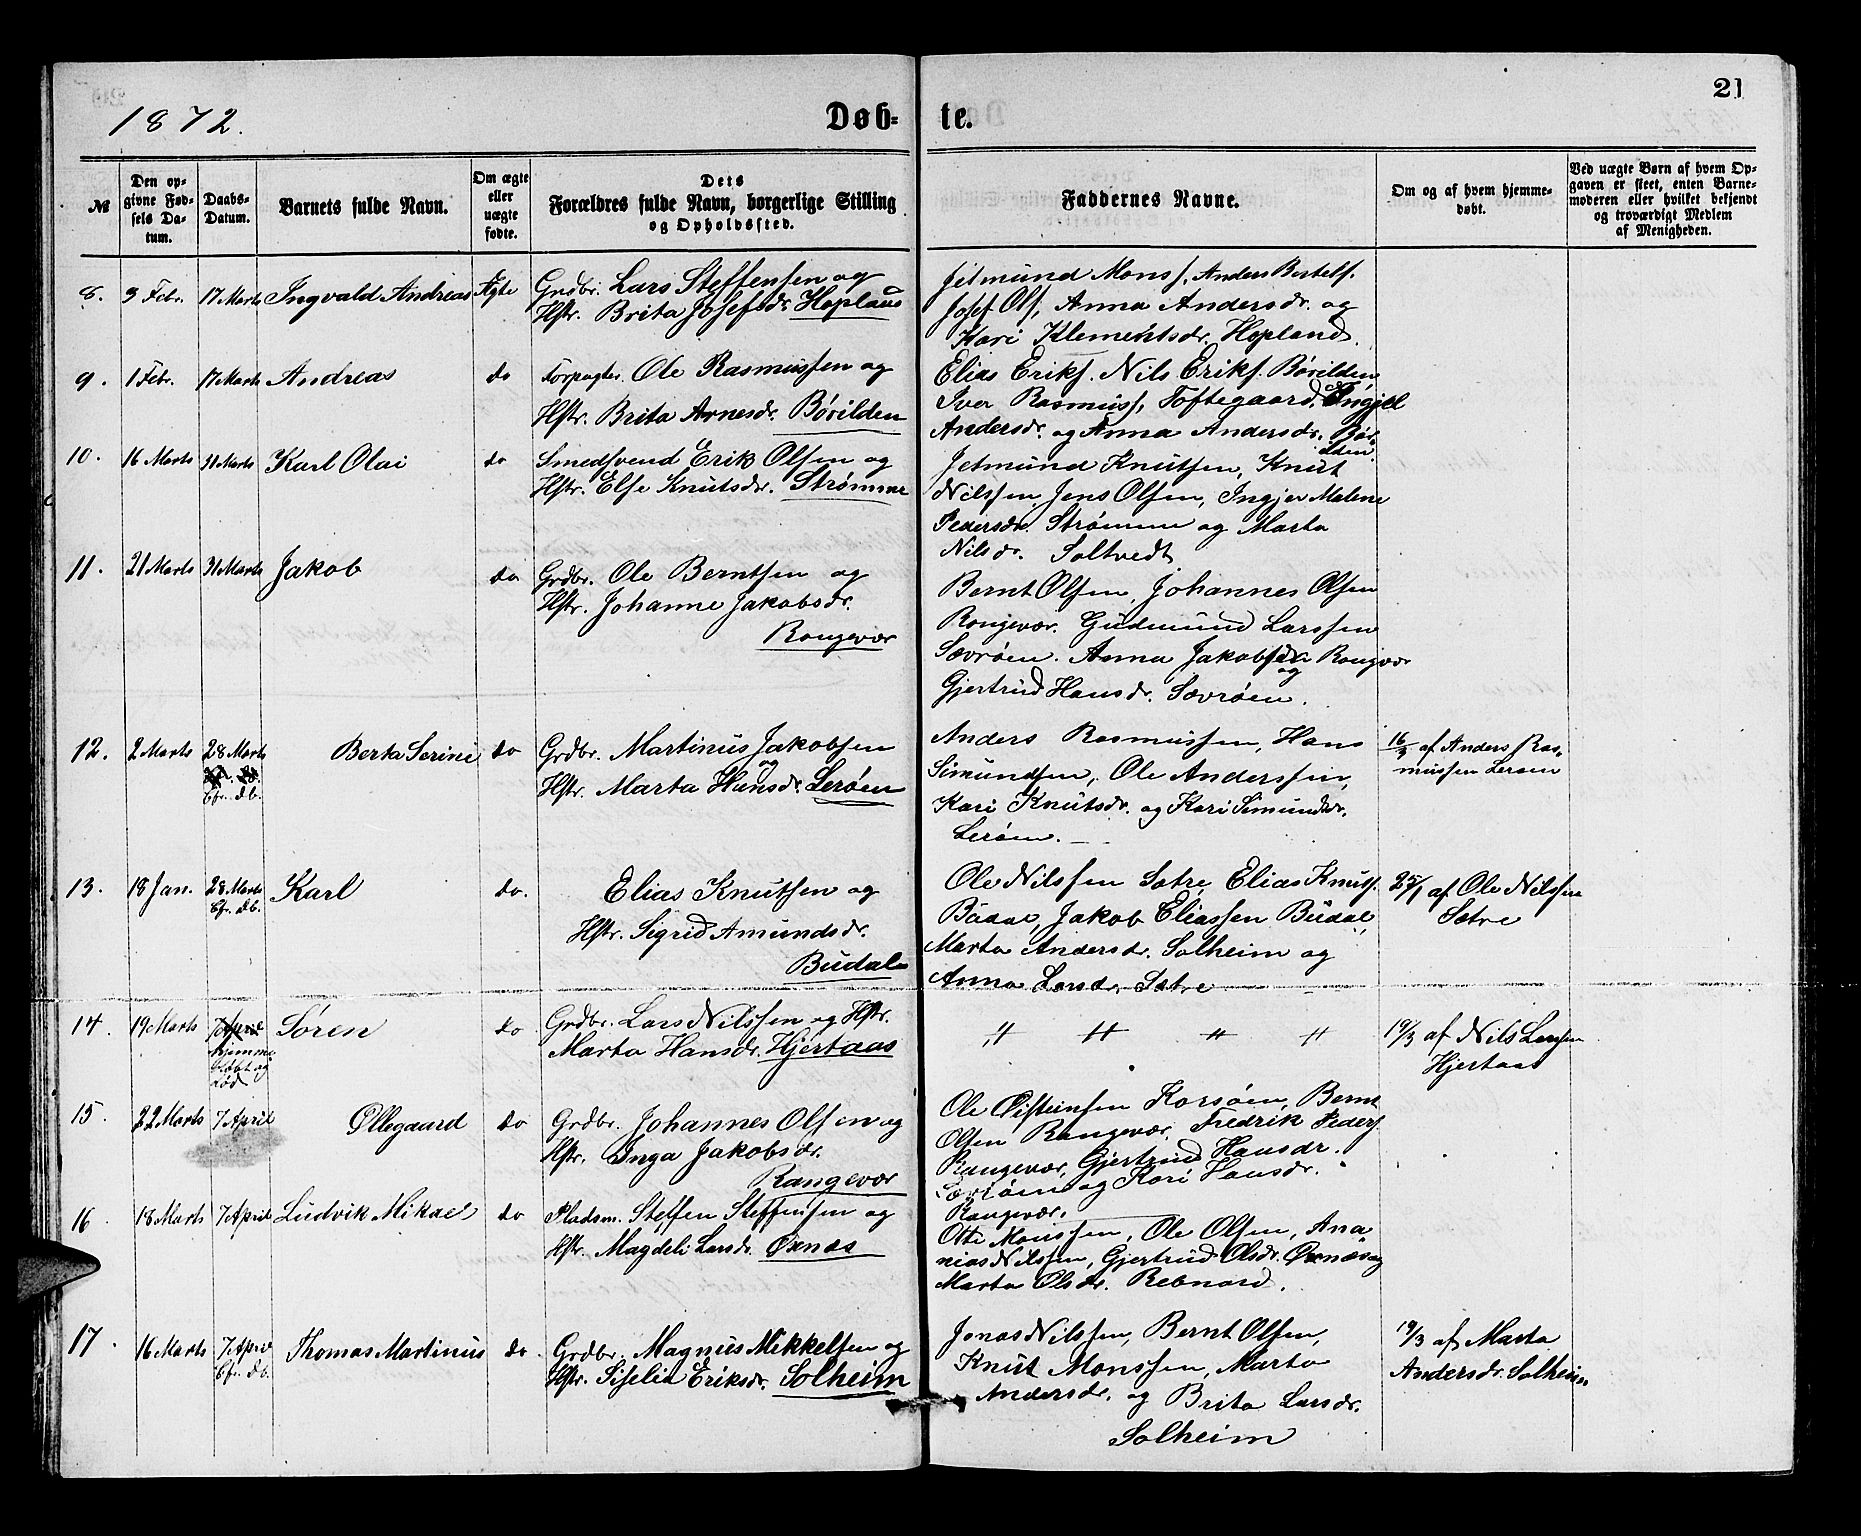 21
1872. Døb- te.
№ Den opgivne Fødsels Datum. Daabs-Datum. Barnets fulde Navn. Om ægte eller uægte fødte. Dets Forældres fulde Navn, borgerlige Stilling og Opholdssted. Faddernes Navne. Om og af hvem hjemmedøbt. Ved uægte Børn af hvem Opgaven er skeet, enten Barnemoderen eller hvilket bekjendt og troværdigt Medlem af Menigheden.
8. 9 Febr. 17 Marts Ingvald Andreas Ægte Grdbr. Lars Steffensen og
Hstr. Brita Josefsdr. Hopland
Jetmund Monss. Anders Bertels.
Josef Ols, Anna Andersdr. og
Kari Klementsdr. Hopland.
9. 1 Febr. 17 Marts Andreas do Forpagter Ole Rasmussen og
Hstr. Brita Arnesdr. Børilden
Elias Eriks. Nils Eriks. Børilden
Iver Rasmuss, Toftegaard, Ingjel
Andersdr. og Anna Andersdr. Bør-
ilden.
10. 16 Marts 31 Marts Karl Olai do Smedsvend Erik Olsen og
Hstr. Else Knutsdr. Strømme
Jetmund Knutsen, Knut
Nilssen, Jens Olsen, Ingjer Malene
Pedersdr. Strømme og Marta
Nilsdr. Soltvedt
11. 21 Marts 31 Marts Jakob do Grdbr. Ole Berntsen og
Hstr. Johanne Jakobsdr.
Rongevær
Bernt Olsen, Johannes Olsen
Rongevær. Gudmund Larssen
Sævrøen. Anna Jakobsdr. Rongevær
og
Gjertrud Hansdr. Sævrøen.
12. 2 Marts 28 Marts Berta Serine do Grdbr. Martinus Jakobsen
Cfr. db.
og
Hstr. Marta Hansdr. Lerøen
Anders Rasmussen, Hans
Simundsen, Ole Anderssen,
Kari Knutsdr. og Kari Simundsdr.
Lerøen.
16/3 af Anders Ras-
mussen Lerøen
13. 18 Jan. 28 Marts Karl do. Elias Knutsen og
Cfr. db.
Hstr. Sigrid Amundsdr.
Budal
Ole Nilssen Sætre, Elias Knuts.
Budal, Jakob Eliassen Budal,
Marta Andersdr. Solheim og
Anna Larsdr. Sætre
25/1 af Ole Nilssen
Sætre
14. 19 Marts 7 April Søren do Grdbr. Lars Nilssen og Hstr.
hjemme
døbt og
død
Marta Hansdr. Hjertaas
" " " "
19/3 af Nils Larssen
Hjertaas
15. 22 Marts 7 April Ollegaard do Grdbr. Johannes Olsen og
Hstr. Inga Jakobsdr.
Rangevær
Ole Øisteinsen Korsøen, Bernt
Olsen Rangevær, Fredrik Peders.
Rangevær, Gjertrud Hansdr.
Sævrøen og Kari Hansdr.
Rangevær.
16 18 Marts 7 April Ludvik Mikael do Pladsm. Steffen Steffensen og
Hstr. Magdeli Larsdr. Øxnæs
Otte Monssen, Ole Olsen, Ana-
nias Nilssen, Gjertrud Olsdr. Øxnæs og
Marta Olsdr. Rebnord.
17. 16 Marts 7 April Thomas Martinus do. Grdbr. Magnus Mikkelsen og
Cfr. db.
Hstr. Siselia Eriksdr. Solheim
Jonas Nilssen, Bernt Olsen,
Knut Monssen, Marta
Andersdr. og Brita Larsdr.
Solheim
19/3 af Marta
Andersdr. Solheim